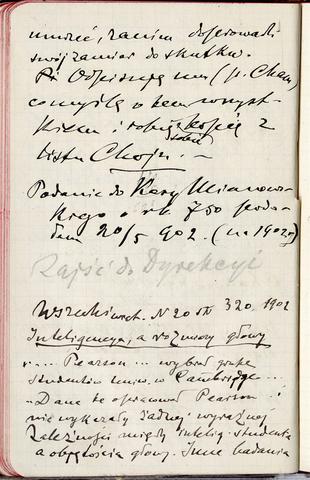 umrzeć, zanim doprowadzi
swój zamiar do skutku.
Odpisuję mu (p. Cham)
co myślę o tem wszyst-
kiem i robię kopię z
listu Chojn. —
Podanie do Kasy Mianow-
skiego o rb. 750 poda-
łem 20/5 902. (na 1902)
Zajść do Dyrekcyi
Wszechświat. N 20 320. 1902
Inteligencya, a rozmiary głowy
r.... Pearson ... wybrał grupę
studentów uniw. w Cambridge...
„Dane te opracował Pearson i
nie wykazały żadnej wyraźnej
zależności między intelig. studenta
a objętością głowy. Inne badania